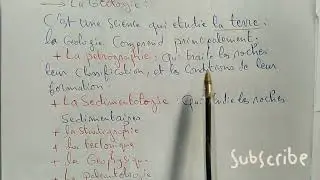 → La Géologie :
C'est une science qui étudie la terre :
la Géologie Comprend principalement :
+ La pétrographie : Qui traite les roches
leur classification, et les Conditions de leur
formation.
+ La Sédimentologie : Qui étudie les roches
Sédimentaires
+ la stratigraphie
+ la tectonique
+ la Géophysique
+ la paléontologie
Subscribe